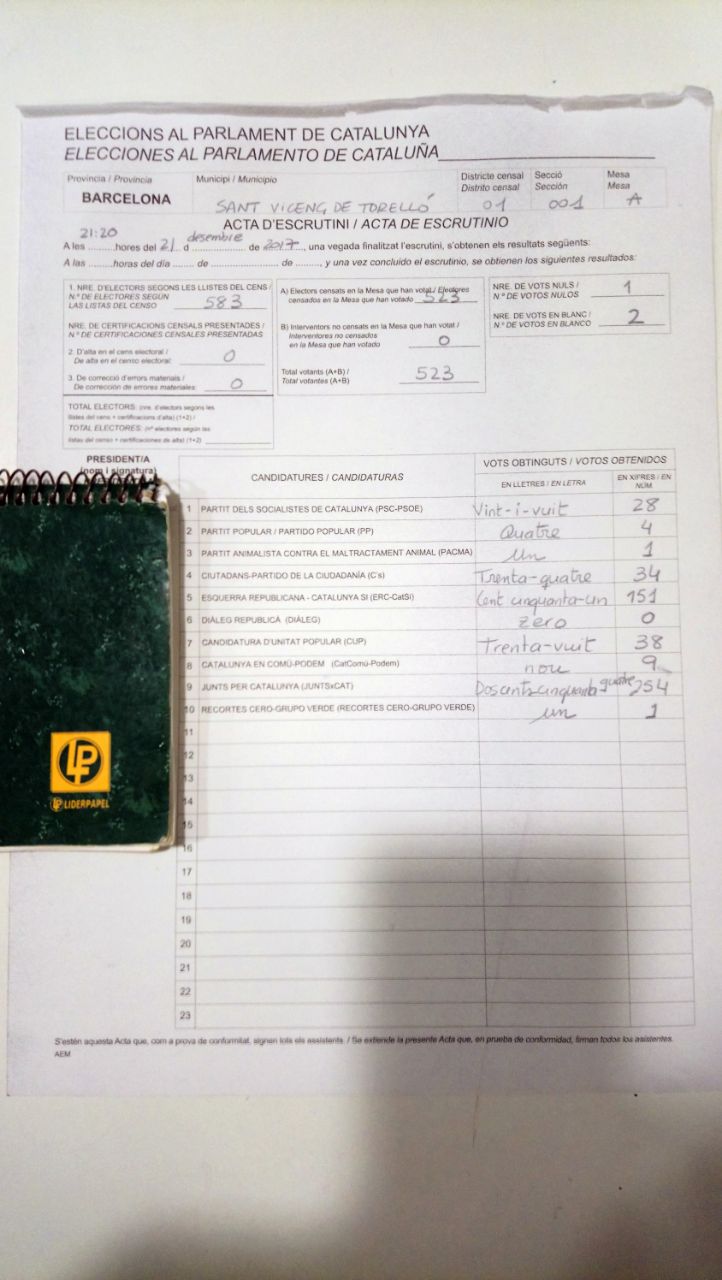 ELECCIONS AL PARLAMENT DE CATALUNYA
ELECCIONES AL PARLAMENTO DE CATALUÑA
Província / Provincia
BARCELONA
Municipi / Municipio
SANT VICENÇ DE TORELLÓ
Districte censal
Distrito censal
01
Secció
Sección
001
Mesa
Mesa
A
ACTA D'ESCRUTINI / ACTA DE ESCRUTINIO
A les 21:20 hores del 21 d desembre de 2017, una vegada finalitzat l'escrutini, s'obtenen els resultats següents:
A las ........horas del día ....... de ................... de ........, y una vez concluido el escrutinio, se obtienen los siguientes resultados:
1. NRE. D'ELECTORS SEGONS LES LLISTES DEL CENS /
N.º DE ELECTORES SEGÚN
LAS LISTAS DEL CENSO 583
NRE. DE CERTIFICACIONS CENSALS PRESENTADES /
N.º DE CERTIFICACIONES CENSALES PRESENTADAS
2. D'alta en el cens electoral /
De alta en el censo electoral: 0
3. De correcció d'errors materials /
De corrección de errores materiales: 0
TOTAL ELECTORS: (nre. d'electors segons les
llistes del cens + certificacions d'alta) (1+2) /
TOTAL ELECTORES: (nº electores según las
listas del censo + certificaciones de alta) (1+2)
A) Electors censats en la Mesa que han votat / Electores
censados en la Mesa que han votado 523
B) Interventors no censats en la Mesa que han votat /
Interventores no censados
en la Mesa que han votado 0
Total votants (A+B) /
Total votantes (A+B) 523
NRE. DE VOTS NULS /
N.º DE VOTOS NULOS 1
NRE. DE VOTS EN BLANC /
N.º DE VOTOS EN BLANCO 2
PRESIDENT/A
(nom i signatura)
CANDIDATURES / CANDIDATURAS
VOTS OBTINGUTS / VOTOS OBTENIDOS
EN LLETRES / EN LETRA
EN XIFRES / EN NÚM.
1 PARTIT DELS SOCIALISTES DE CATALUNYA (PSC-PSOE) Vint-i-vuit 28
2 PARTIT POPULAR / PARTIDO POPULAR (PP) Quatre 4
3 PARTIT ANIMALISTA CONTRA EL MALTRACTAMENT ANIMAL (PACMA) un 1
4 CIUTADANS-PARTIDO DE LA CIUDADANÍA (C's) Trenta-quatre 34
5 ESQUERRA REPUBLICANA - CATALUNYA SI (ERC-CatSi) Cent cinquanta-un 151
6 DIÀLEG REPUBLICÀ (DIÀLEG) zero 0
7 CANDIDATURA D'UNITAT POPULAR (CUP) Trenta-vuit 38
8 CATALUNYA EN COMÚ-PODEM (CatComú-Podem) nou 9
9 JUNTS PER CATALUNYA (JUNTSxCAT) Doscents cinquanta quatre 254
10 RECORTES CERO-GRUPO VERDE (RECORTES CERO-GRUPO VERDE) un 1
11
12
13
14
15
16
17
18
19
20
21
22
23
LP
LP LIDERPAPEL
S'estén aquesta Acta que, com a prova de conformitat, signen tots els assistents. / Se extiende la presente Acta que, en prueba de conformidad, firman todos los asistentes.
AEM